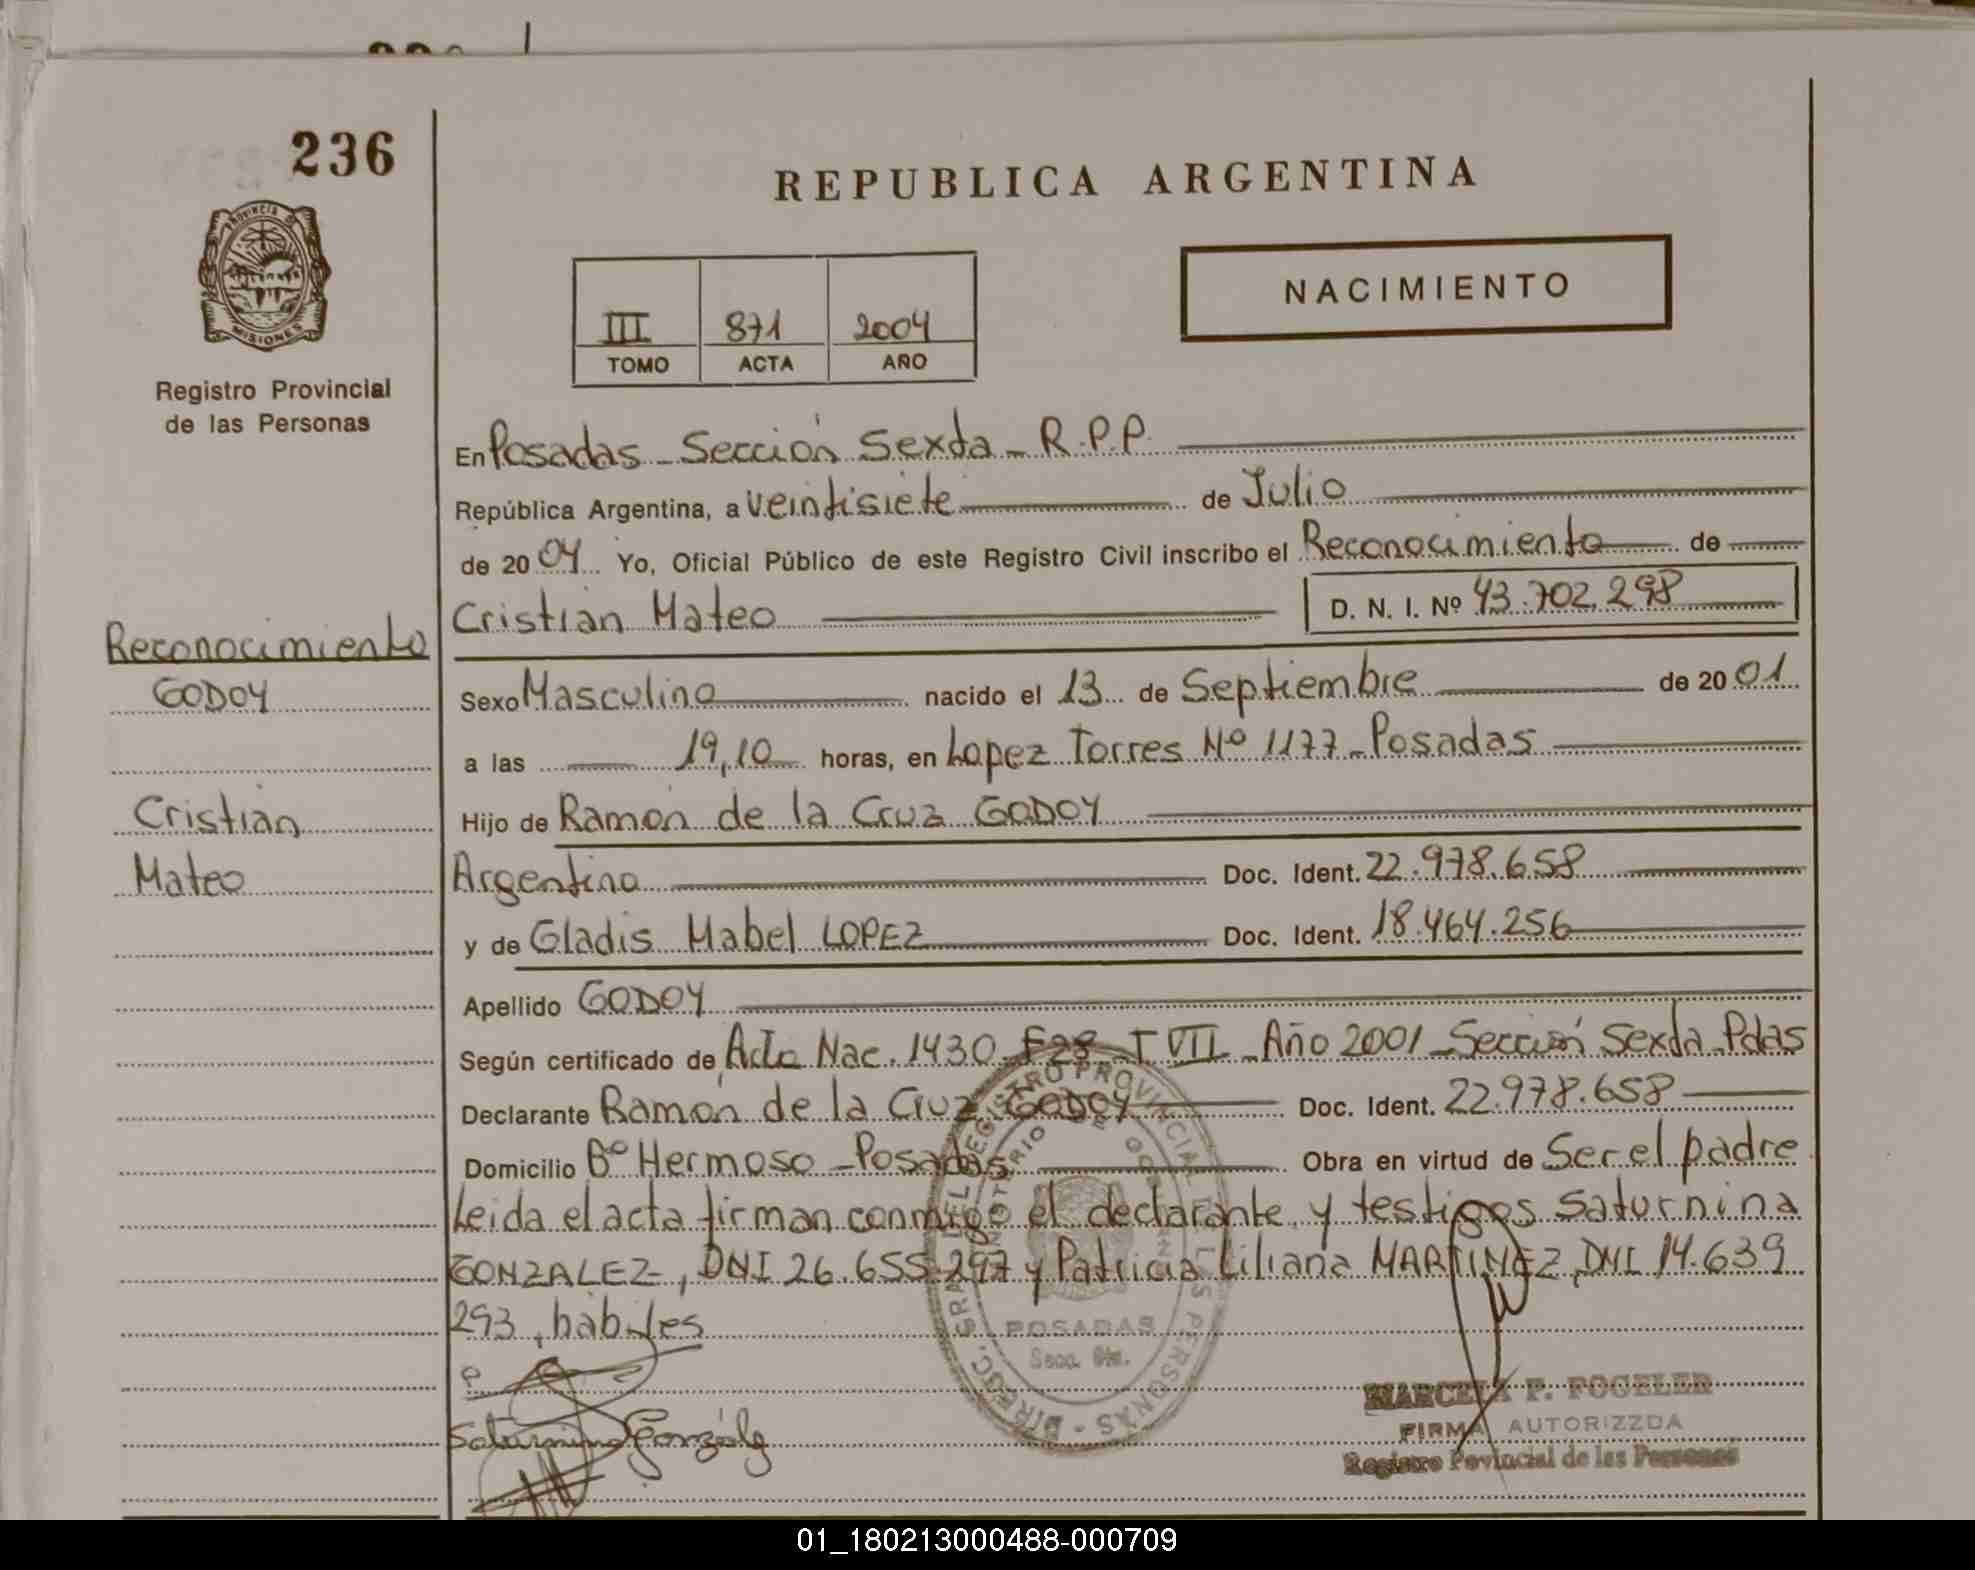 236
REPUBLICA ARGENTINA
PROVINCIA DE
MISIONES
Registro Provincial
de las Personas
III 871 2004
TOMO ACTA AÑO
NACIMIENTO
En Posadas - Sección Sexta - R.P.P.
República Argentina, a veintisiete de Julio
de 2004 Yo, Oficial Público de este Registro Civil inscribo el Reconocimiento de
Cristian Mateo D. N. I. Nº 43.702.298
Reconocimiento
GODOY
Cristian
Mateo
Sexo Masculino nacido el 13 de Septiembre de 2001
a las 19,10 horas, en Lopez Torres Nº 1177 - Posadas
Hijo de Ramón de la Cruz GODOY
Argentino Doc. Ident. 22.978.658
y de Gladis Mabel LOPEZ Doc. Ident. 18.464.256
Apellido GODOY
Según certificado de Acta Nac. 1430 F28 T VII - Año 2001 - Sección Sexta Pdas
Declarante Ramón de la Cruz GODOY Doc. Ident. 22.978.658
Domicilio Bº Hermoso - Posadas Obra en virtud de Ser el padre
Leida el acta firman conmigo el declarante y testigos Saturnina
GONZALEZ, DNI 26.655.297 y Patricia Liliana MARTINEZ, DNI 14.639
293, hábiles
DIRECC. GRAL DEL REGISTRO PROVINCIAL DE LAS PERSONAS
MINISTERIO DE GOBIERNO
POSADAS
Secc. 6ta.
Saturnina González
MARCELA F. FOGELER
FIRMA AUTORIZZDA
Registro Povincial de las Personas
01_180213000488-000709